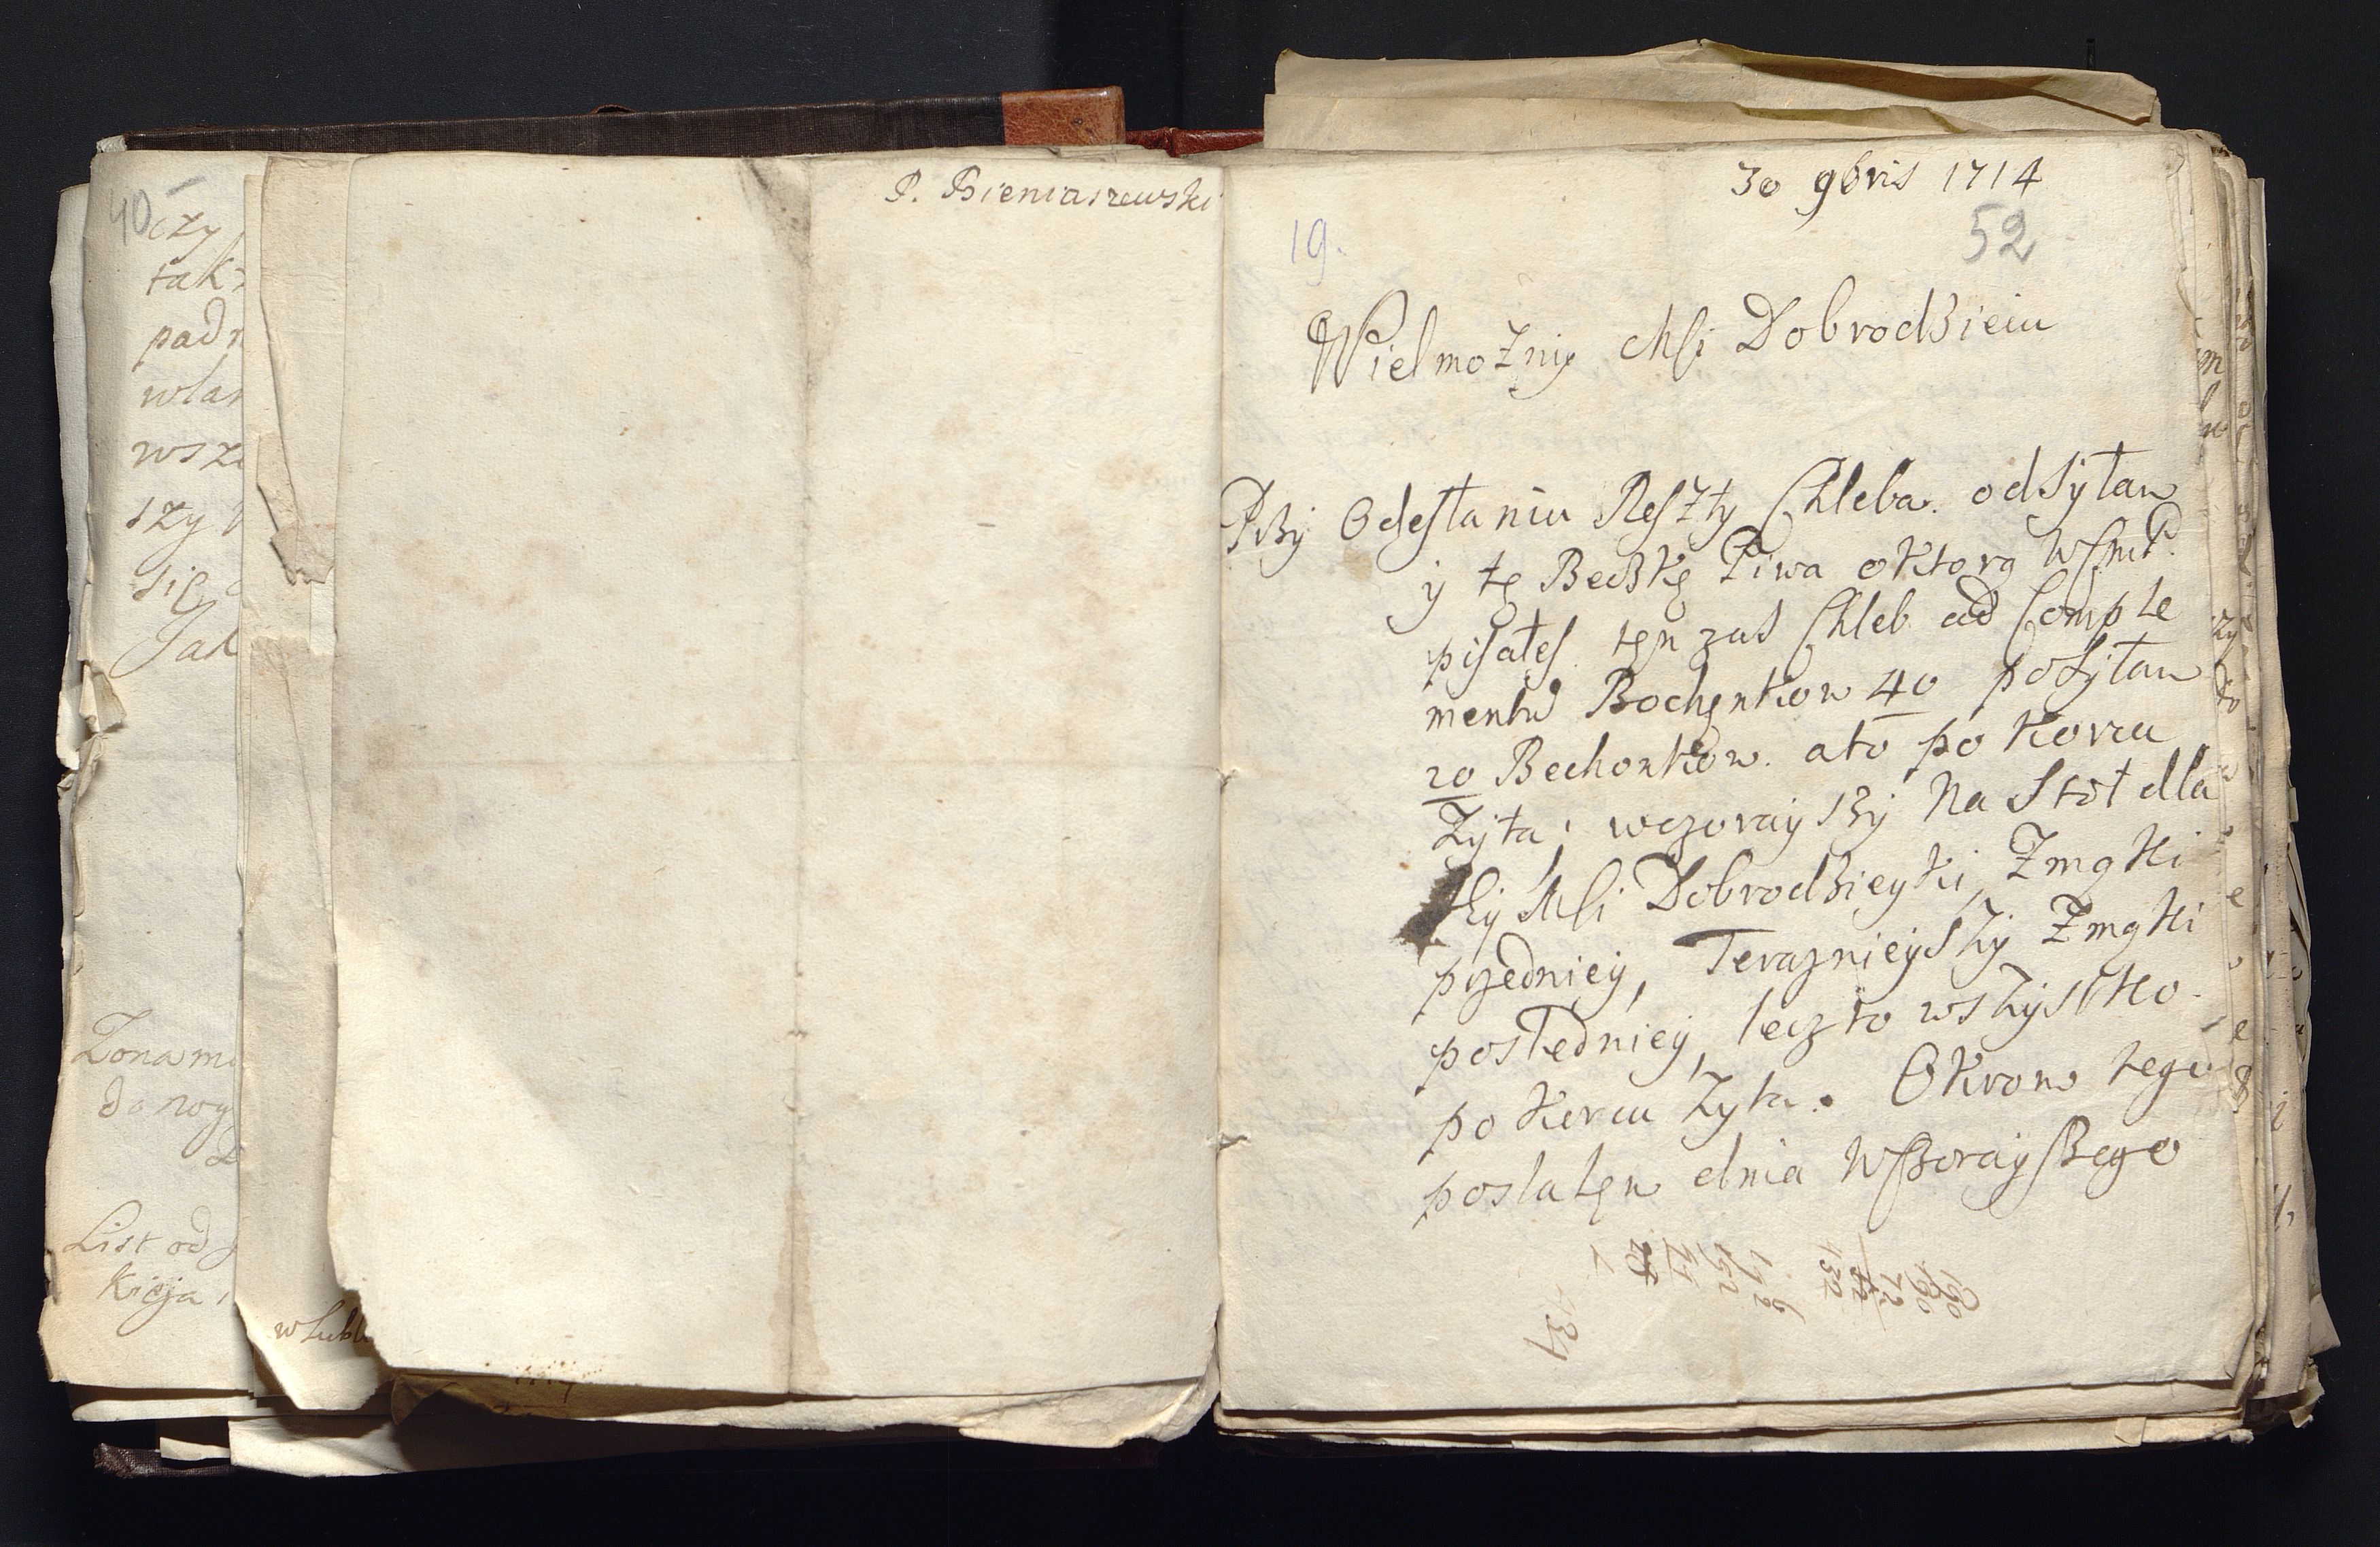 40
czy
tak
padn
wlan
wsze
szy
się
Jak
Zona
do nog
List od
Kicja
w Lubl
P. Bieniaszewski
30 9bris 1714
19.
52
Wielmożny Mſi Dobrodzieiu
Przÿ Odesłaniu Reſzty Chleba. odsÿłam
ÿ tę Beczkę Piwa o Ktorą
piſałeſ. ten zas Chleb ad Comple
mentũ Bochęnkow 40 posÿłam
20 Bochonkow. a to po Korcu
Zÿta; wczorayszÿ Na Stoł dla
Mſi Dobrodzieyki Zmąki
przedniey, Teraznieyszÿ Zmąki
posledniey, lecz to wszystko
po Korcu Zyta. Okrom tego
posłałęm dnia Wczorayszego